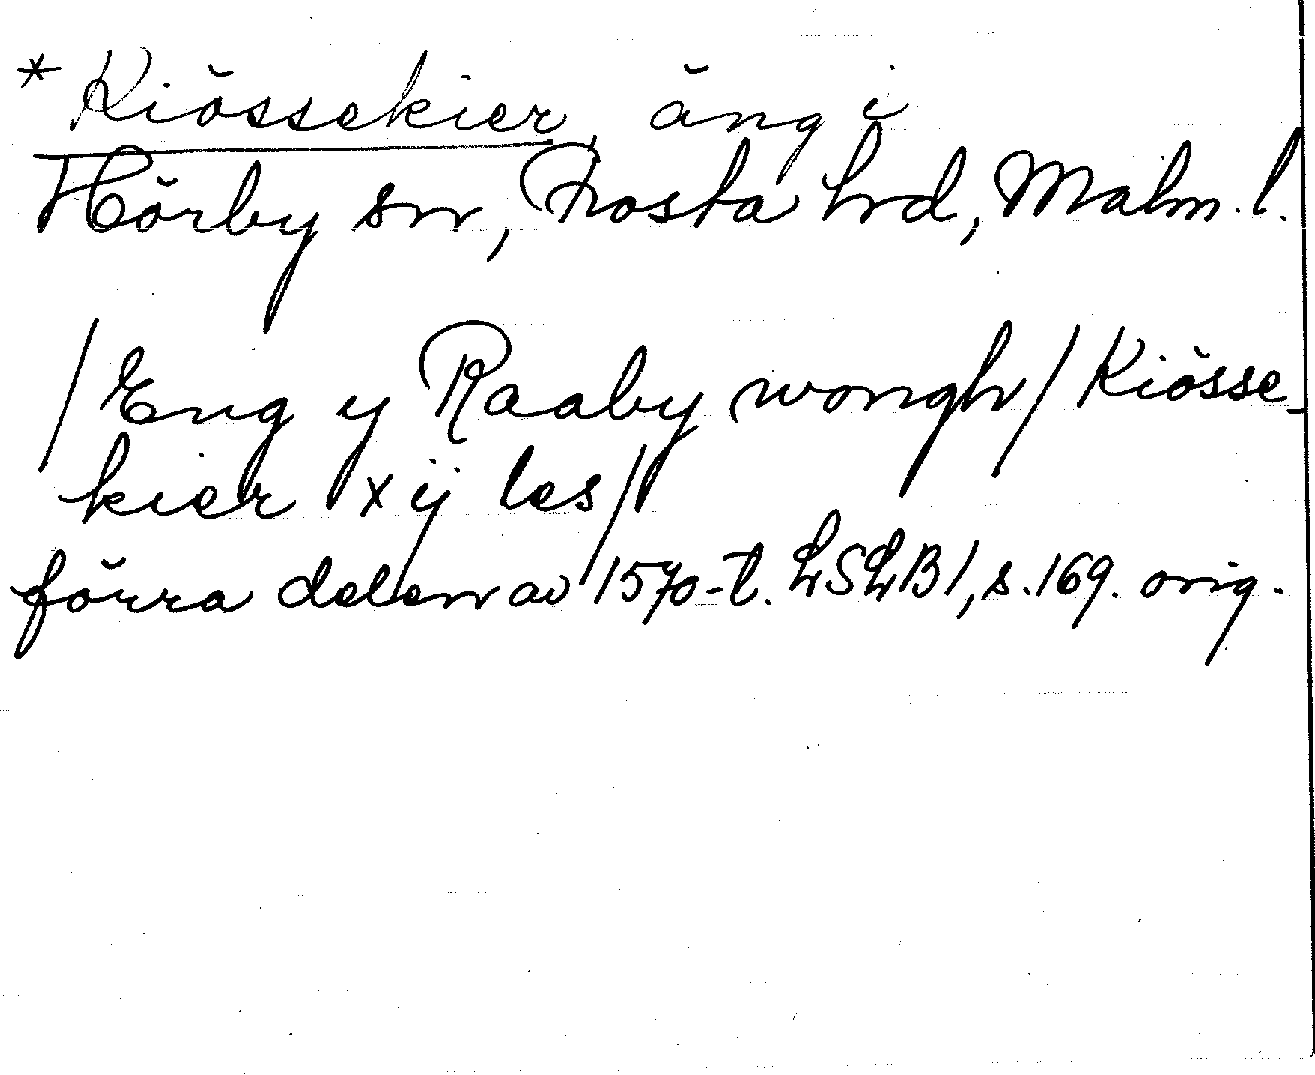 * Kiössekier, äng i
Hörby sn, Frosta hrd, Malm. l.
/Eng y Raaby wongh/ Kiösse-
kier xij les/
förra delen av 1570-t. LSLB1, s. 169. orig.